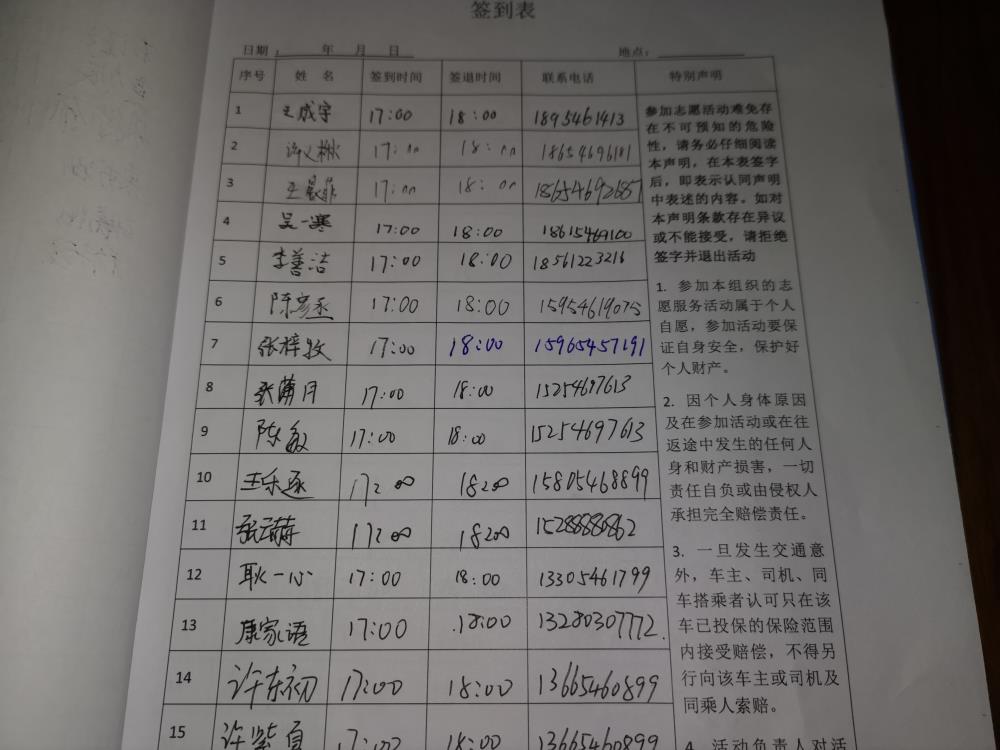 签到表
日期： 年 月 日 地点：
序号 姓 名 签到时间 签退时间 联系电话 特别声明
1 王成宇 17:00 18:00 18954461413
2 17:00 18:00 18654696181
3 王晨菲 17:00 18:00 18654692687
4 吴一寒 17:00 18:00 18615469100
5 李善洁 17:00 18:00 18561223216
6 陈彦丞 17:00 18:00 15954619075
7 张梓牧 17:00 18:00 15965457191
8 张蒲月 17:00 18:00 15254697613
9 陈敏 17:00 18:00 15254697613
10 王乐逐 17:00 18:00 15805468899
11 17:00 18:00 15288880862
12 耿一心 17:00 18:00 13305461799
13 康家语 17:00 18:00 13280307772
14 许东初 17:00 18:00 13665460899
15 许紫夏 17:00 18:00 13665460899
参加志愿活动难免存
在不可预知的危险
性，请务必仔细阅读
本声明，在本表签字
后，即表示认同声明
中表述的内容。如对
本声明条款存在异议
或不能接受，请拒绝
签字并退出活动
1. 参加本组织的志
愿服务活动属于个人
自愿，参加活动要保
证自身安全，保护好
个人财产。
2. 因个人身体原因
及在参加活动或在往
返途中发生的任何人
身和财产损害，一切
责任自负或由侵权人
承担完全赔偿责任。
3. 一旦发生交通意
外，车主、司机、同
车搭乘者认可只在该
车已投保的保险范围
内接受赔偿，不得另
行向该车主或司机及
同乘人索赔。
4. 活动负责人对活